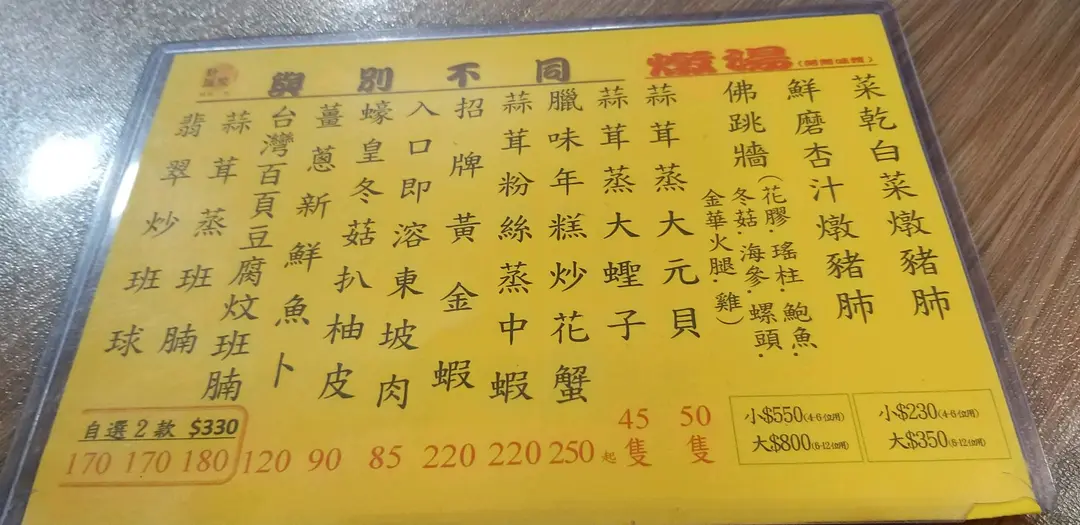 燉湯
與別不同
菜乾白菜燉豬肺
鮮磨杏汁燉豬肺
小$230(4-6位用)
大$350(8-12位用)
佛跳牆(花膠·瑤柱·鮑魚·
冬菇·海參·螺頭·
金華火腿·雞)
小$550(4-6位用)
大$800(8-12位用)
蒜茸蒸大元貝
50隻
蒜茸蒸大蟶子
45隻
臘味年糕炒花蟹
250起
蒜茸粉絲蒸中蝦
220
招牌黃金蝦
220
入口即溶東坡肉
85
蠔皇冬菇扒柚皮
90
薑蔥新鮮魚卜
120
台灣百頁豆腐炆班腩
180
蒜茸蒸班腩
170
翡翠炒班球
170
自選2款 $330